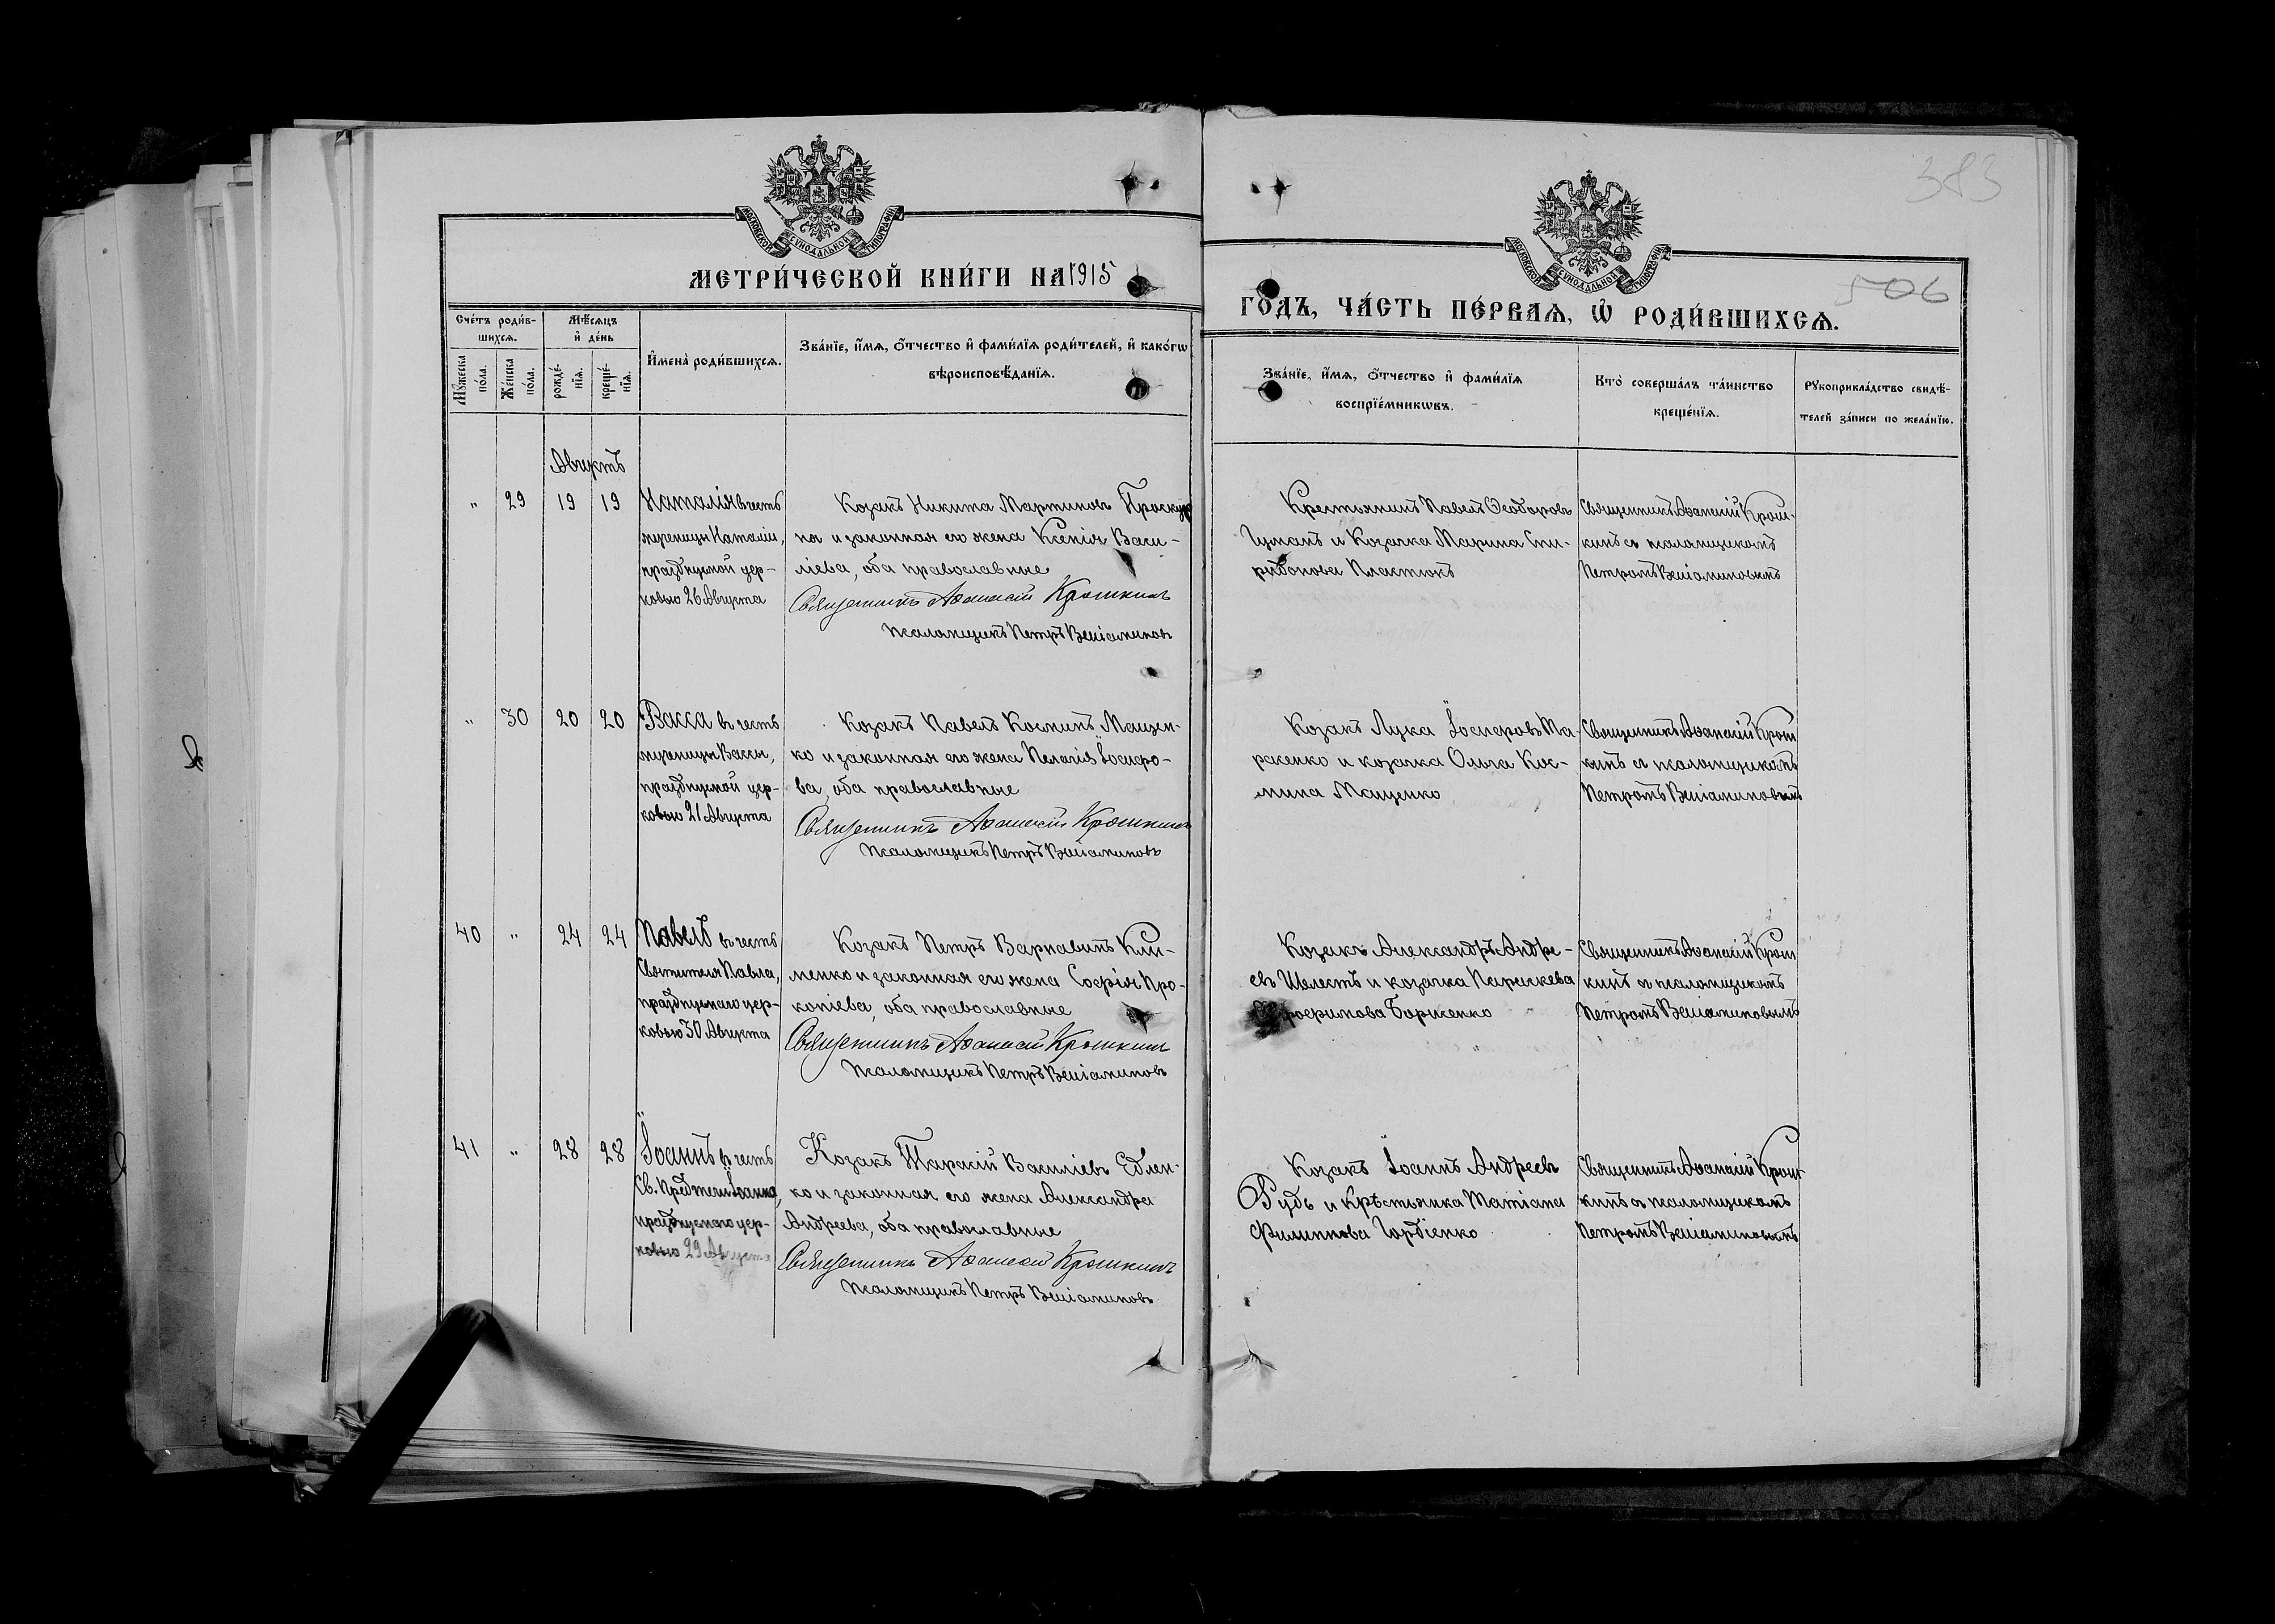 383
506
МОСКОВСКОЙ СѴНОДАЛЬНОЙ ТИПОГРАФІИ
МОСКОВСКОЙ СѴНОДАЛЬНОЙ ТИПОГРАФІИ
МЕТРИ́ЧЕСКОЙ КНИ́ГИ НА 1915
ГО́ДЪ, ЧА́СТЬ ПЕ́РВАѦ, Ѡ҆ РОДИ́ВШИХСѦ.
Сче́тъ роди́в-
шихсѧ.
Мꙋ́жеска
по́ла.
Же́нска
по́ла.
Мѣ́сѧцъ
и҆ де́нь
рожде́-
нїѧ.
креще́-
нїѧ.
И҆мена̀ роди́вшихсѧ.
Зва́нїе, и҆́мѧ, ѻ҆́тчество и҆ фами́лїѧ роди́телей, и҆ како́гѡ
вѣроисповѣ́данїѧ.
Зва́нїе, и҆́мѧ, ѻ҆́тчество и҆ фами́лїѧ
воспрїе́мникѡвъ.
Кто̀ соверша́лъ та́инство
креще́нїѧ.
Рꙋкоприкла́дство свидѣ́-
телей за́писи по жела́нїю.
Августъ
" 29 19 19
Наталія въ честь
мученицы Наталіи,
празднуемой цер-
ковью 26 Августа
Козакъ Никита Мартиновъ Проскур
ня и законная его жена Ксенія Васи-
ліева, оба православные
Священникъ Аѳанасій Крошкинъ
Псаломщикъ Петръ Веніаминовъ
Крестьянинъ Павелъ Ѳеодоровъ
Цуманъ и Козачка Марина Спи-
ридонова Пластюкъ
Священникъ Аѳанасій Крош-
кинъ съ псаломщикомъ
Петромъ Веніаминовымъ
" 30 20 20
Васса въ честь
мученицы Вассы,
празднуемой цер-
ковью 21 Августа
Козакъ Павелъ Косминъ Мащен-
ко и законная его жена Пелагія Іосифо-
ва, оба православные
Священникъ Аѳанасій Крошкинъ
Псаломщикъ Петръ Веніаминовъ
Козакъ Лука Іосифовъ Та-
расенко и козачка Ольга Кос-
мина Мащенко
Священникъ Аѳанасій Крош
кинъ съ псаломщикомъ
Петромъ Веніаминовымъ
40 " 24 24
Павелъ въ честь
Святителя Павла,
празднуемаго цер-
ковью 30 Августа
Козакъ Петръ Варнавинъ Кли-
менко и законная его жена Софія Про-
копіева, оба православные
Священникъ Аѳанасій Крошкинъ
Псаломщикъ Петръ Веніаминовъ
Козакъ Александръ Андре-
евъ Шелестъ и козачка Параскева
Борисенко
Священникъ Аѳанасій Крош
кинъ съ псаломщикомъ
Петромъ Веніаминовымъ
41 " 28 28
Іоаннъ въ честь
Св. Предтечи Іоанна,
празднуемаго цер-
ковью 29 Августа
Козакъ Тарасій Василіевъ Едлен-
ко и законная его жена Александра
Андреева, оба православные
Священникъ Аѳанасій Крошкинъ
Псаломщикъ Петръ Веніаминовъ
Козакъ Іоаннъ Андреевъ
Рудь и Крѣстьянка Татіана
Филиппова Гордіенко
Священникъ Аѳанасій Крош
кинъ съ псаломщикомъ
Петромъ Веніаминовымъ